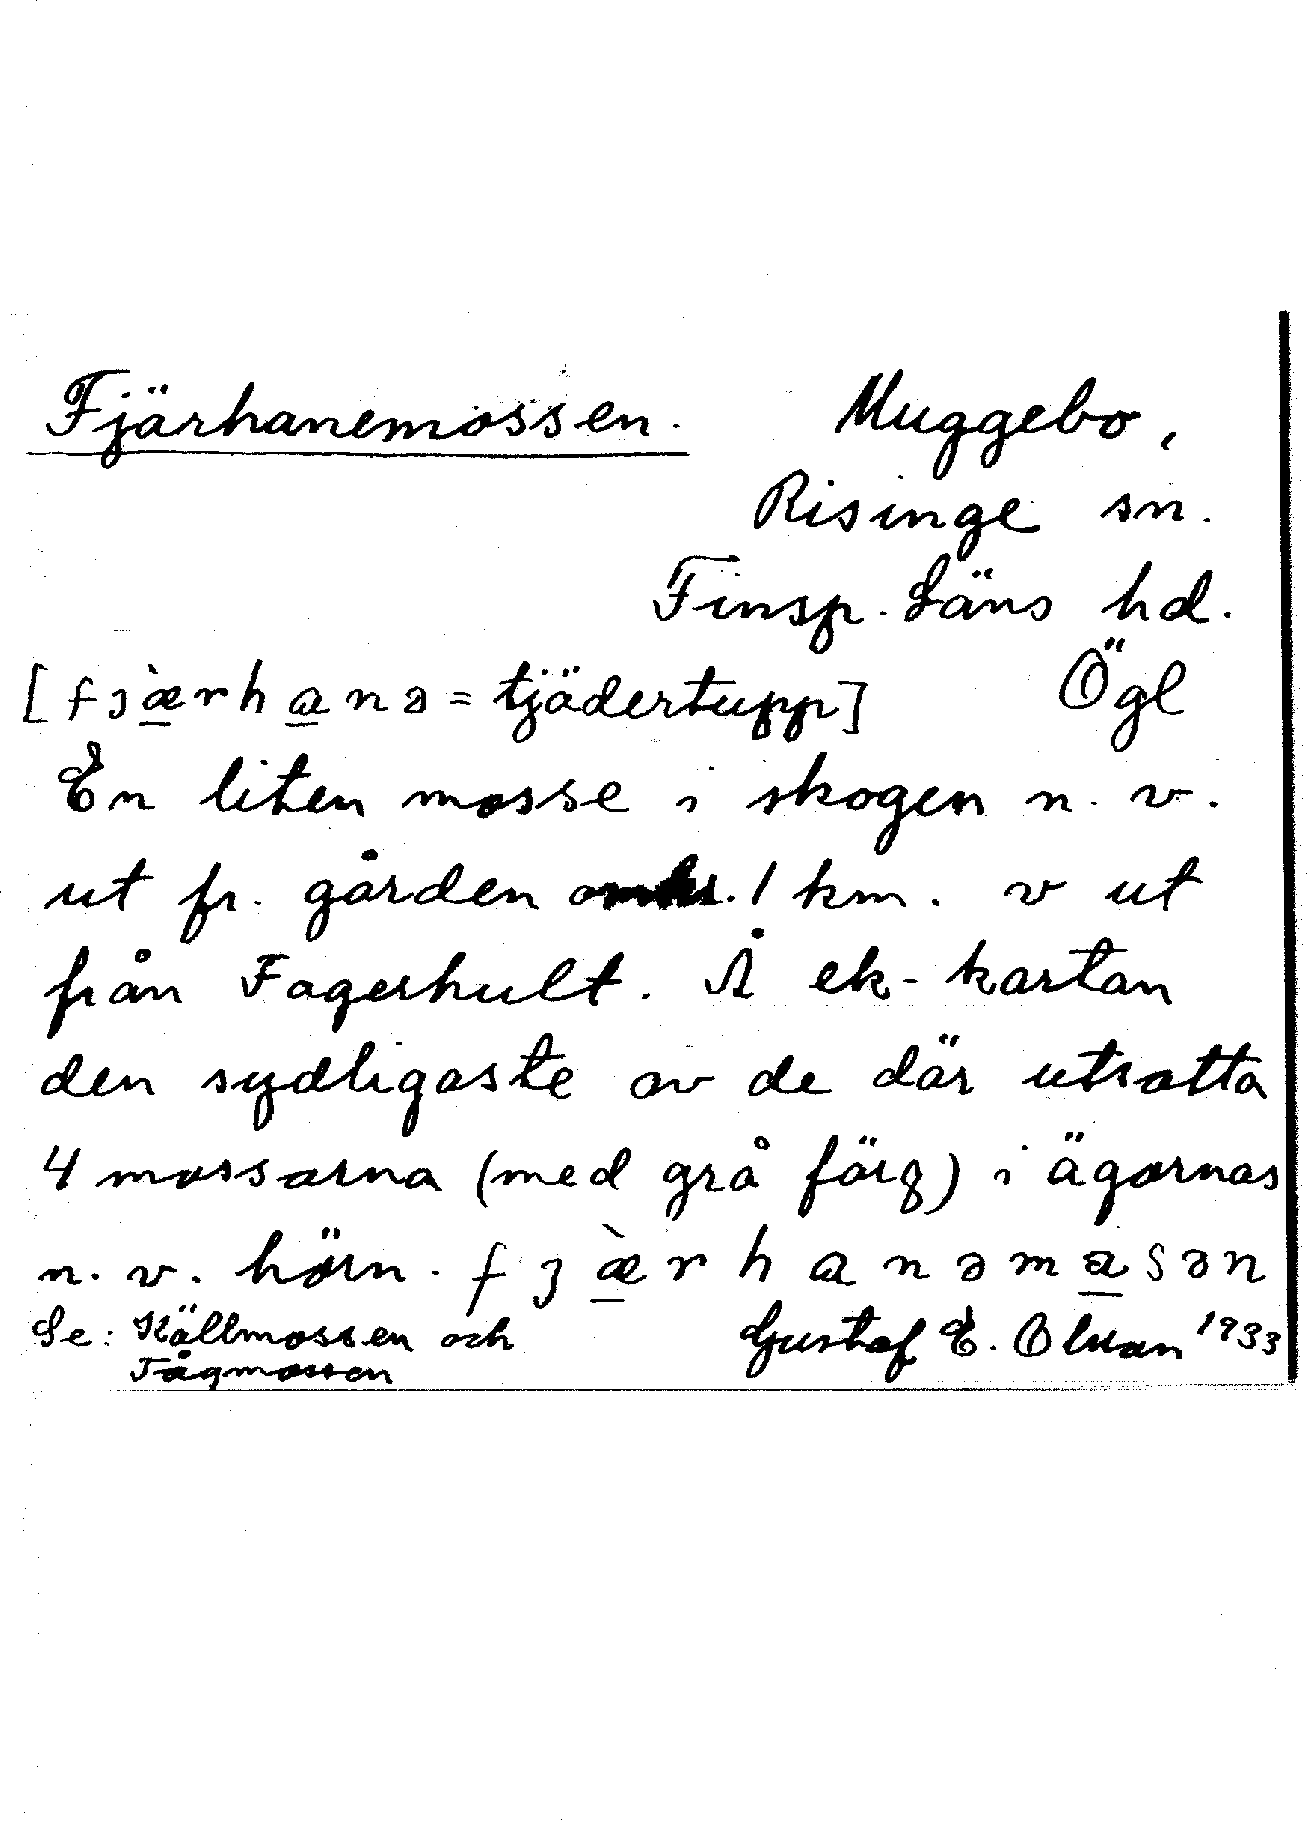 Fjärhanemossen. Muggebo,
Risinge sn.
Finsp. Läns hd.
[fjæ̀rhanə = tjädertupp] Ögl
En liten mosse i skogen n. v.
ut fr. gården 1 km. v ut
från Fagerhult. Å ek-kartan
den sydligaste av de där utsatta
4 mossarna (med grå färg) i ägornas
n. v. hörn. fjæ̀rhanəmasən
Se: Källmossen och Gustaf E. Olsson 1933
Tågmossen